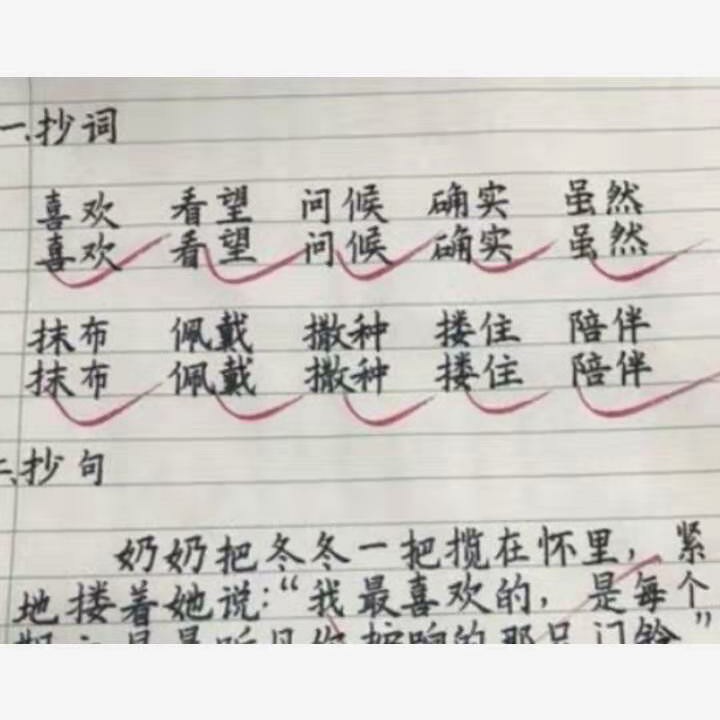 一、抄词
喜欢 看望 问候 确实 虽然
喜欢 看望 问候 确实 虽然
抹布 佩戴 撒种 搂住 陪伴
抹布 佩戴 撒种 搂住 陪伴
二、抄句
奶奶把冬冬一把揽在怀里，紧
地搂着她说：“我最喜欢的，是每个
听见你 响的那只门铃”